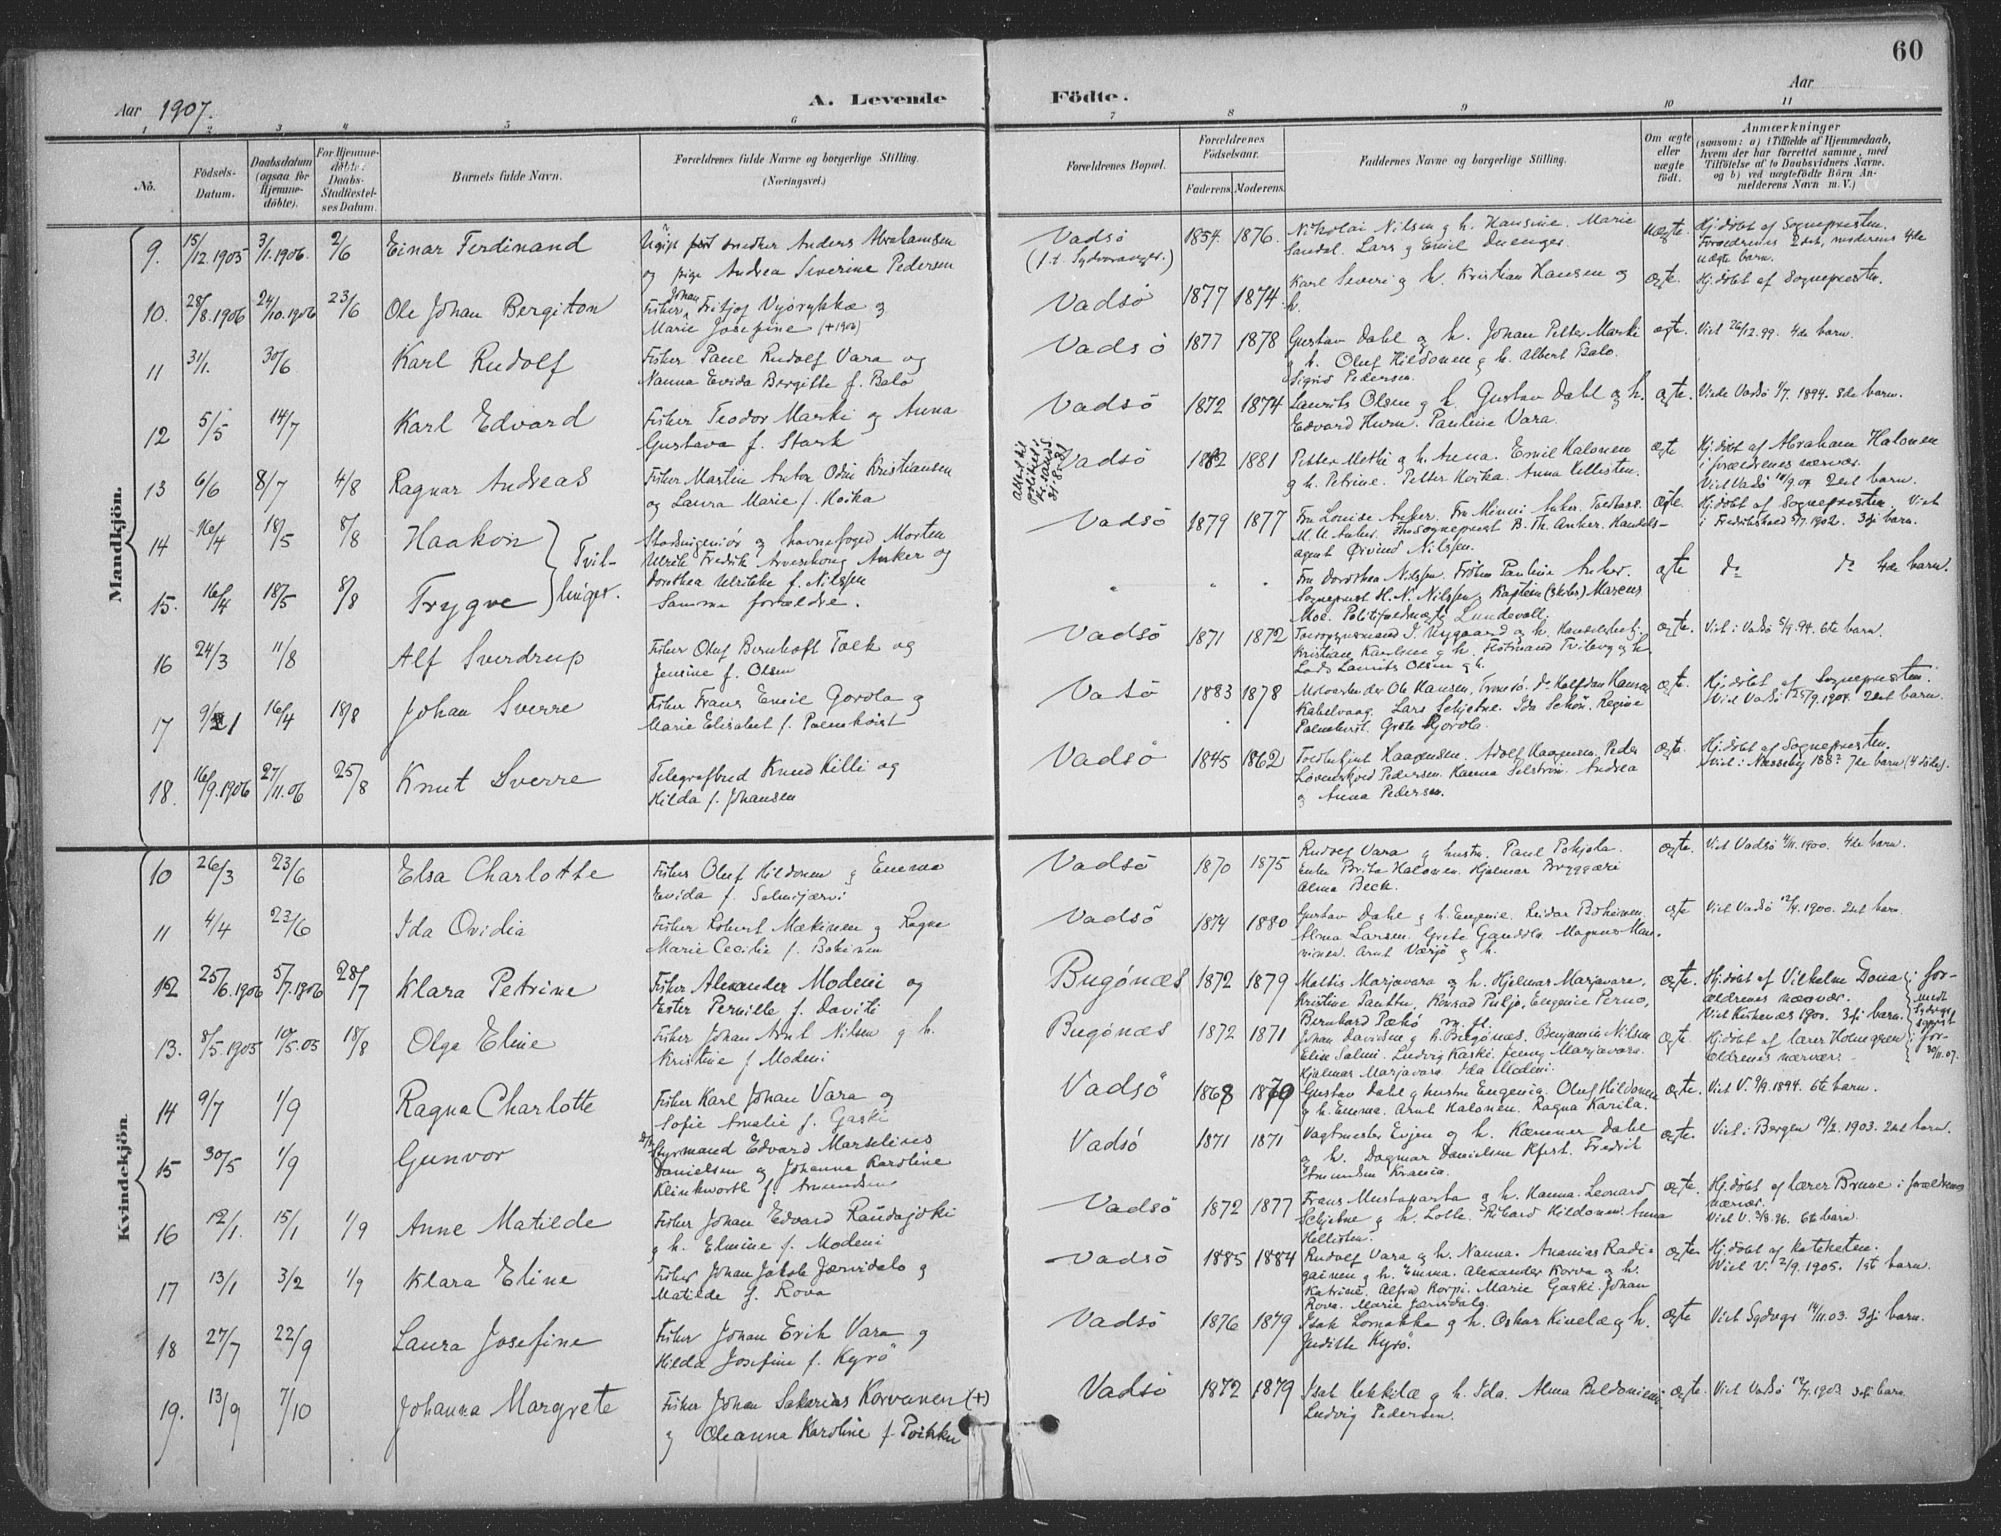 60
Aar 1907.
A. Levende Födte.
Aar
1 2 3 4 5 6 7 8 9 10 11
No.
Fødsels-Datum.
Daabsdatum (ogsaa for Hjemmedöbte).
For Hjemmedöbte: Daabs-Stadfæstelses Datum.
Barnets fulde Navn.
Forældrenes fulde Navne og borgerlige Stilling. (Næringsvei.)
Forældrenes Bopæl.
Forældrenes Födselsaar.
Faderens. Moderens.
Faddernes Navne og borgerlige Stilling.
Om ægte eller uægte födt.
Anmærkninger
(saasom: a) i Tilfælde af Hjemmedaab, hvem der har forrettet samme, med Tilföielse af to Daabsvidners Navne. og b) ved uægtefödte Börn Anmelderens Navn m. V.)
Mandkjön.
9. 15/12.1905 3/1.1906. 2/6 Einar Ferdinand
Ugift snedker Anders Abrahamsen
og pige Andrea Severine Pedersen
Vadsö (f.t. Sydvaranger.) 1854 1876.
Nikolai Nilsen g h. Hansine. Marie
Sandal. Lars g Emil Duenger.
uægte. Hj.döbt af Sognepresten.
Forældrenes 2det, moderens 4de
uægte barn.
10. 28/8.1906 24/10.1906 23/6 Ole Johan Bergiton
Fisker Johan Fritjof Vyörykkä g
Marie Josefine (+1906)
Vadsö 1877 1874.
Karl Siveri g h. Kristian Hansen g
h.
ægte. Hj.döbt af Sognepresten.
11 31/1. 30/6 Karl Rudolf
Fisker Paul Rudolf Vara og
Nanna Evida Bergitte f. Balo
Vadsö 1877 1878
Gustav Dahl g h. Johan Petter Marki
g h. Oluf Hildonen g h. Albert Balo.
Sigrid Pedersen.
ægte. Viet 26/12.99. 4de barn.
12 5/5 14/7 Karl Edvard
Fisker Teodor Marki og Anna
Gustava f. Stark
Vadsö 1872 1874
Laurits Olsen g h. Gustav Dahl g h.
Edvard Hurn. Pauline Vara.
ægte. Viede Vadsö 1/7. 1894. 8de barn.
13 6/6 8/7 4/8 Ragnar Andreas
Fisker Martin Anton Odin Kristiansen
og Laura Marie f. Hoika
Vadsö 1882 1881
Petter Methi g h. Anna. Emil Halonen
g h. Petrine. Petter Hoika. Anna Hellisten.
ægte Hj.döbt af Abraham Halonen
i forældrenes nærvær.
Viet Vadsö 18/9.04. 2det barn.
14 16/4 18/5 8/8 Haakon
Tvillinger.
Stadsingeniör og havnefoged Morten
Ulrik Fredrik Arveschoug Anker og
Dorothea Ulrikke f. Nilssen
Vadsö 1879 1877
Fru Louise Anker. Fru Minni Anker. Toldkass.
M. U. Anker. Sognepræst B. Th. Anker. Handels-
agent Øivind Nilssen.
ægte. Hj.döbt af Sognepresten. Viet
i Fredrikstad 8/7 1902. 3dj barn.
15. 16/4 18/5 8/8 Trygve
Samme forældre.
" " "
Fru Dorothea Nilssen. Fröken Pauline Anker.
Sognepræst H. N. Nilssen. Kaptein Marcus
Moe. Politifuldmægtig Lundevall.
ægte do do 4de barn.
16 24/3 11/8 Alf Sverdrup
Fisker Oluf Bernhoft Falk og
Jensine f. Olsen
Vadsö 1871 1872
J. Nygaard og h. Handelsbetj.
Kristian Karlsen g h. Flotmand Tvileng g h.
Lods Laurits Olsen g h.
ægte. Viet i Vadsö 5/9.94. 6te barn.
17 9/1 16/4 18/8 Johan Sverre
Fisker Frans Emil Gorola g
Marie Elisabet f. Palmkvist
Vadsö 1883 1878
Ole Hansen, Tromsö, do Halfdan Hansen
Kabelvaag. Lars Schjetne. Ida Schön. Regine
Palmkvist. Grete Gjorola.
ægte. Hj.döbt af Sognepresten.
Viet Vadsö 25/9.1904. 2det barn.
18. 16/9.1906 27/11.06 25/8 Knut Sverre
Telegrafbud Knud Killi og
Hilda f. Johansen
Vadsö 1845 1862
Toldbetjent Haagensen. Adolf Haagensen. Peder
Løvenskjold Pedersen. Hanna Selström. Andrea
g Anna Pedersen.
ægte. Hj.döbt af Sognepresten.
Viet i Næsseby 188? 7de barn (4 döde).
Kvindekjön
10 26/3 23/6 Elsa Charlotte
Fisker Oluf Hildonen g Emma
Evida f. Salmijærvi
Vadsö 1870 1875
Rudolf Vara g hustru. Paul Pohjola.
Enke Brita Halonen. Hjalmar Bryggæri
Alma Beck.
ægte. Viet Vadsö 4/11.1900. 4de barn.
11 4/4 23/6 Ida Ovidia
Fisker Robert Mækinen g Ragna
Marie Cecilie f. Bohinen
Vadsö 1874 1880
Gustav Dahl g h. Eugenie. Reidar Bohinen.
Alma Larsen. Grete Gandola. Magnus Man-
vinen. Arnt Værjö g h.
ægte Viet Vadsö 12/4.1900. 2det barn.
12 25/6.1906 5/7.1906 28/7 Klara Petrine
Fisker Alexander Modeni og
Ester Pernille f. Daviti
Bugönæs 1872 1879
Mattis Marjavara g h. Hjalmar Marjavara.
Kristine Panttu, Konrad Puljo, Eugenie Perno,
Bernhard Pækö m. fl.
ægte. Hj.döbt af Vilhelm Dona i for-
ældrenes nærvær.
Viet Kirkenæs 1900. 3dj barn.
13. 8/5.1905 10/5.05 18/8 Olga Eline
Fisker Johan Arnt Nilsen g h.
Kristine f. Modeni
Bugönæs 1872 1871
Johan Davidsen g h. Bugönæs. Benjamin Nilsen
Elin Salmi. Ludvig Kaski. Jenny Marjavara.
Hjalmar Marjavara. Ida Modeni.
ægte. Hj.döbt af lærer Holmgren i for-
ældrenes nærvær.
30/11.07.
14 9/7 1/9 Ragna Charlotte
Fisker Karl Johan Vara og
Sofie Amalie f. Gaski
Vadsö 1868 1870
Gustav Dahl g hustru Eugenia, Oluf Hildonen
g h. Emma. Arnt Halonen. Ragna Karila.
ægte. Viet V. 9/9.1894. 6te barn.
15 30/5 1/9 Gunvor
Styrmand Edvard Marselius
Danielsen og Johanna Karoline
Klinkworth f. Amundsen
Vadsö 1871 1871
Vagtmester Evjen og h. Kæmner Dahl
g h. Dagmar Danielsen Kfest. Fredrik
Amundsen Krania.
ægte. Viet i Bergen 19/2.1903. 2det barn.
16 12/1. 15/1 1/9 Anne Matilde
Fisker Johan Edvard Raudajoki
g h. Elmine f. Modeni
Vadsö 1872 1877
Frans Mustaparta g h. Hanna. Leonard
Schjetne g h. Lotte. Rikard Hildonen. Anna
Hellisten.
ægte. Hj.döbt af lærer Brune i forældrenes
nærvær.
Viet V. 3/8.96. 6te barn.
17 13/1 3/2 1/9 Klara Eline
Fisker Johan Jakob Jærvidalo g
Matilde f. Rova
Vadsö 1885 1884
Rudolf Vara g h. Nanna. Ananias Radi-
gainen g h. Emma. Alexander Korva g h.
Katrine. Alfred Korpi. Marie Gaski. Johan
Rova. Marie Jærvidalo.
ægte. Hj.döbt af Kateketen.
Viet V. 2/9.1905. 1st barn.
18 27/7 22/9 Laura Josefine
Fisker Johan Erik Vara g
Hilda Josefine f. Kyrö
Vadsö 1876 1879
Isak Lomakka g h. Oskar Kivelæ g h.
Juditte Kyrö.
ægte Viet Sydvgr 14/11.03. 3dj barn.
19. 13/9 7/10 Johanna Margrete
Fisker Johan Sakarias Korvanen (+)
og Oleanna Karoline f. Poikku
Vadsö 1872 1879
Isak Kekkilæ g h. Ida. Alma Beldonien.
Ludvig Pedersen.
ægte. Viet Vadsö 12/4.1903. 3dj barn.